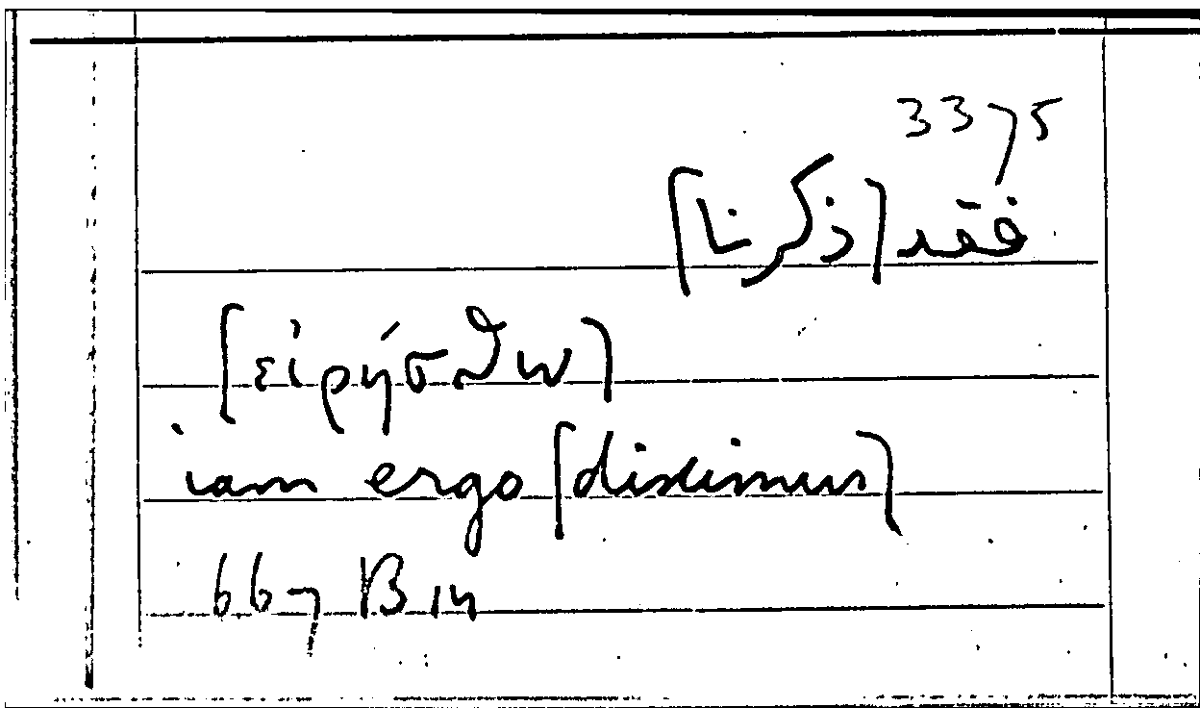 3375
فقد [ذكرنا]
[εἰρήσθω]
iam ergo [diximus]
667 B 14